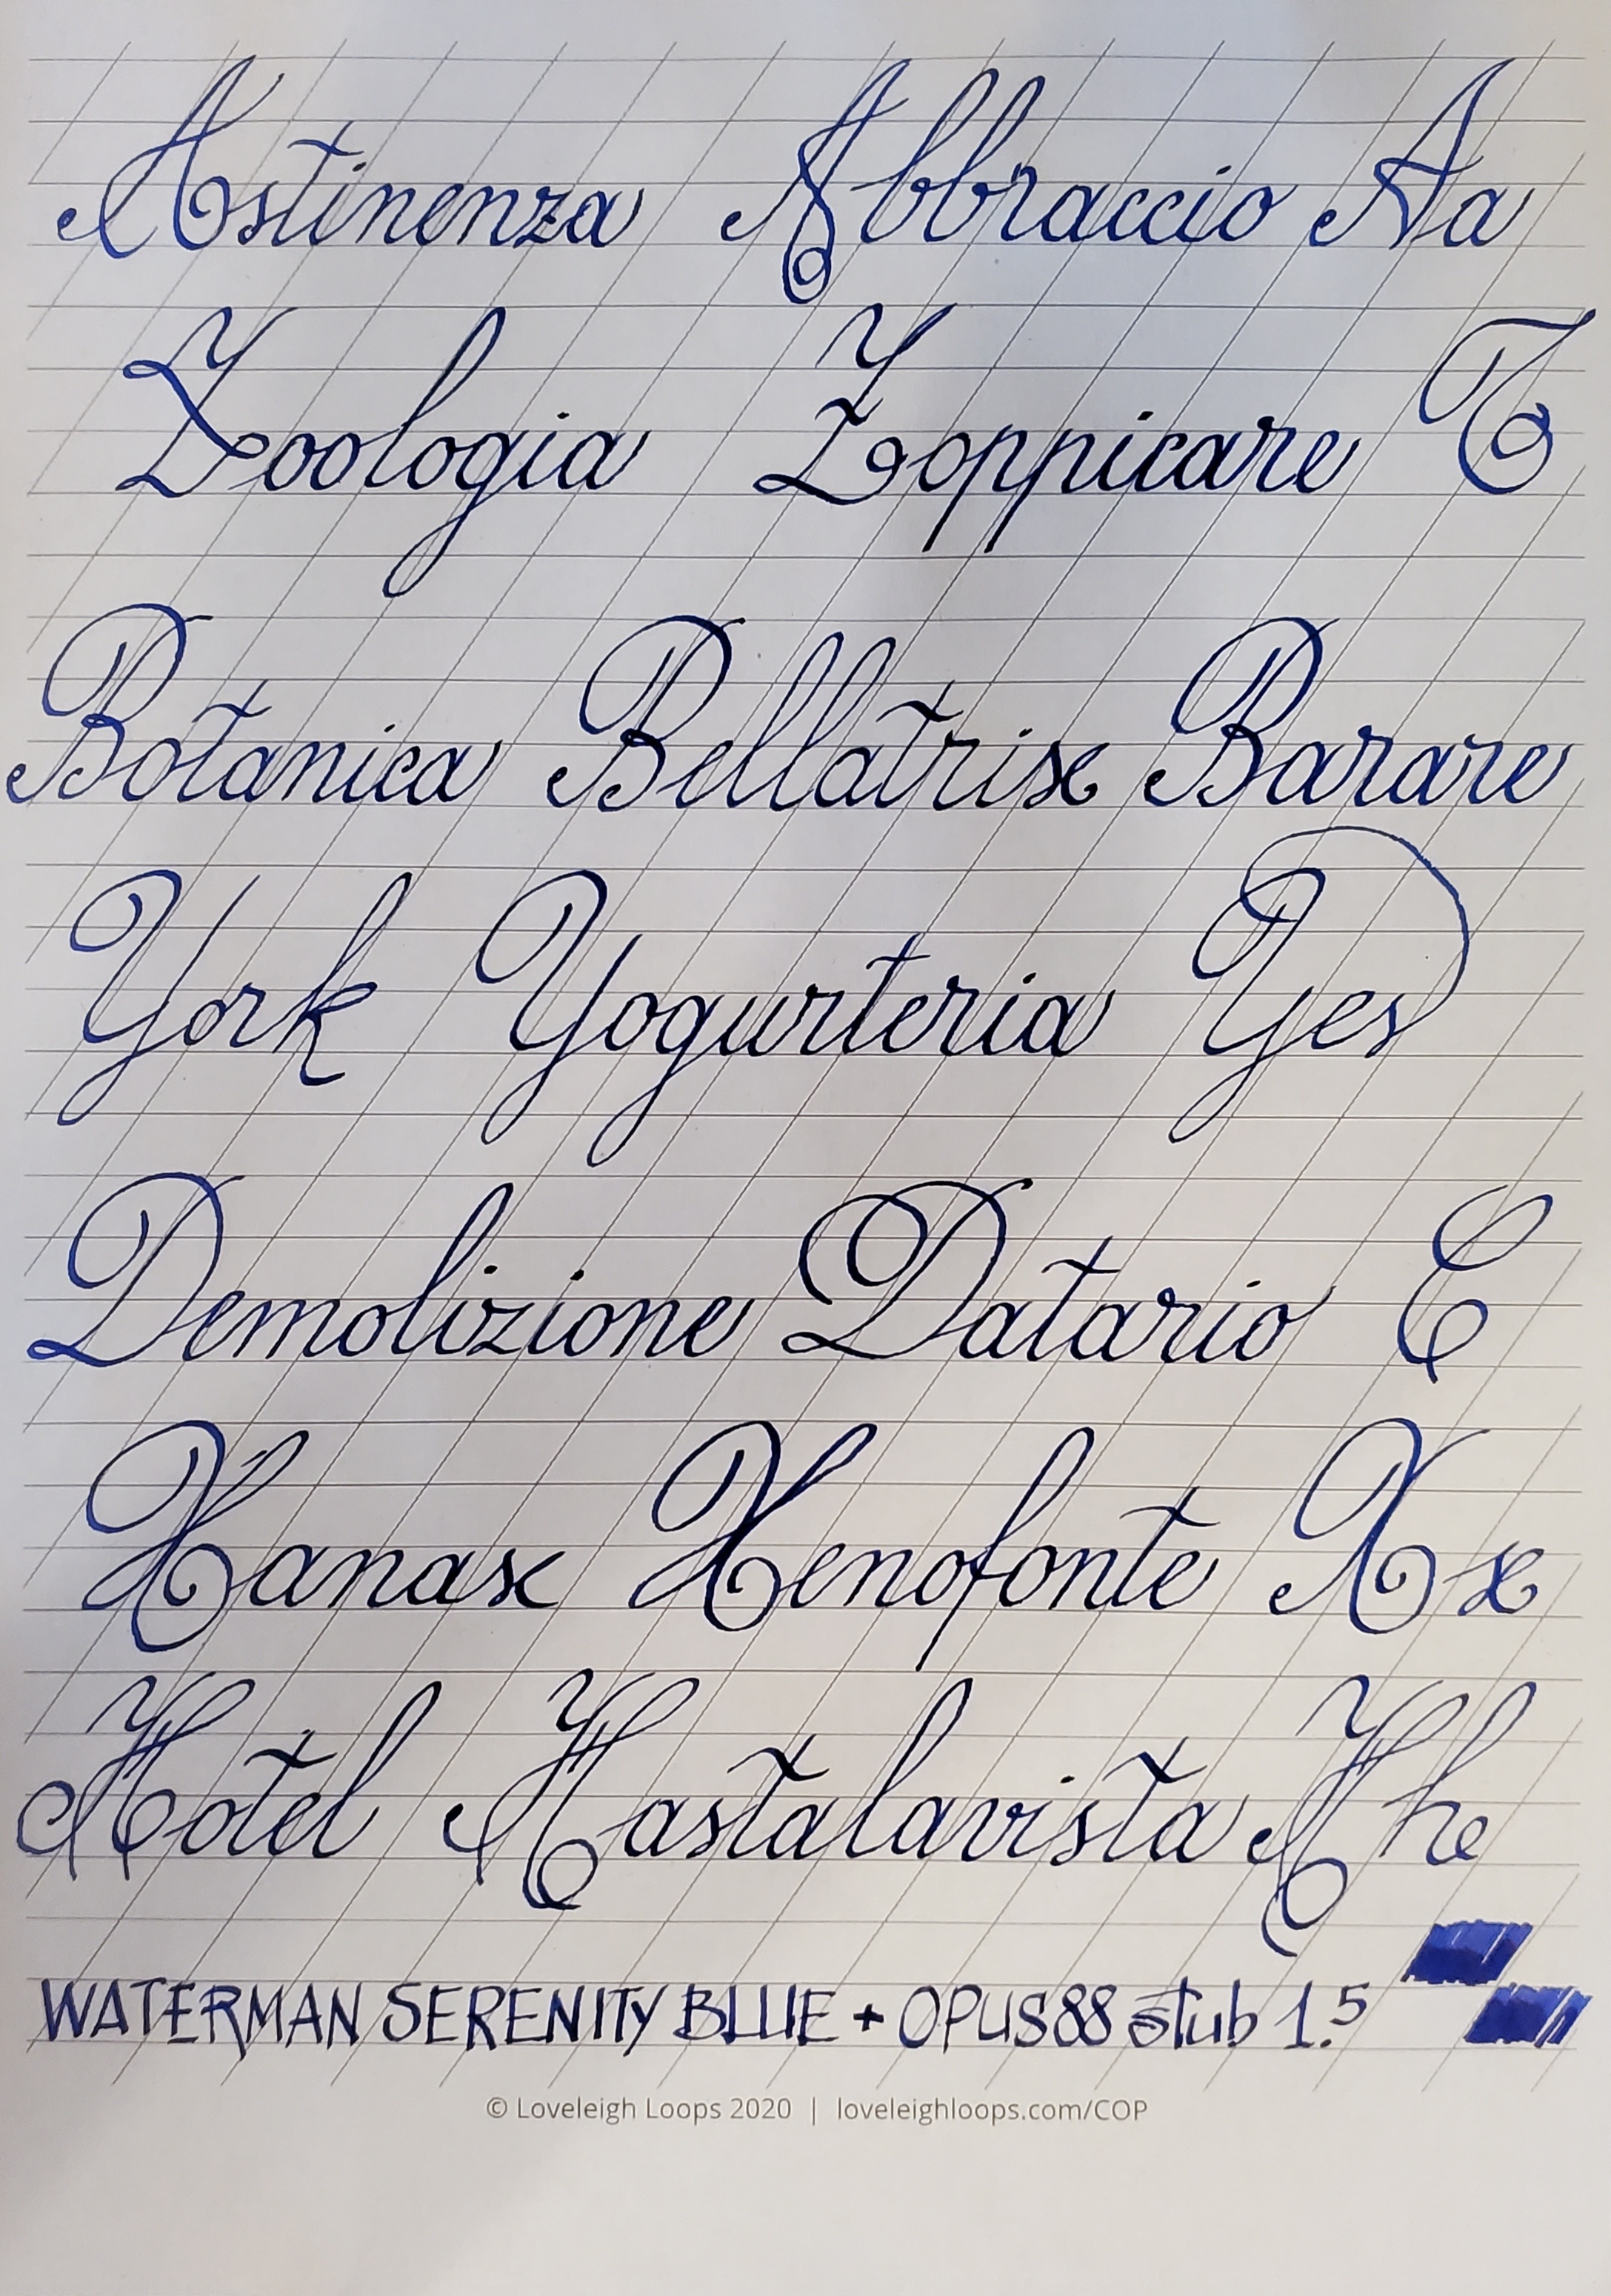 Astinenza Abbraccio Aa
Zoologia Zoppicare T
Botanica Bellatrix Barare
York Yogurteria Yes
Demolizione Datario C
Xanax Xenofonte Xx
Hotel Hastalavista Hh
WATERMAN SERENITY BLUE + OPUS88 stub 1.5
© Loveleigh Loops 2020 | loveleighloops.com/COP